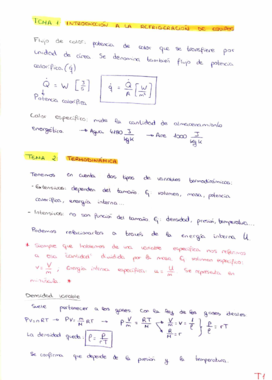 TEMA 1 INTRODUCCIÓN A LA REFRIGERACIÓN DE EQUIPOS
Flujo de calor: potencia de calor que se transfiere por
unidad de área. Se denomina también flujo de potencia
calorífica (q̇)
Q̇ = W [J/s] q̇ = Q̇/A [W/m²]
Potencia calorífica
Calor específico: mide la cantidad de almacenamiento
energético. → Agua 4180 J/kgK → Aire 1000 J/kgK
TEMA 2 TERMODINÁMICA
Tenemos en cuenta dos tipos de variables termodinámicas:
- Extensivas: dependen del tamaño Ej: volumen, masa, potencia
calorífica, energía interna...
- Intensivas: no son función del tamaño Ej: densidad, presión, temperatura...
Podemos relacionarlas a través de la energía interna U.
* Siempre que hablemos de una variable específica nos referimos
a esa "cantidad" dividida por la masa. Ej: volumen específico:
v = V/m ; Energía interna específica: u = U/m. Se expresarán en
minúscula *
Densidad variable
Suele pertenecer a los gases. Con la ley de los gases ideales:
PV = nRT → PV = m/M RT → P V/m = RT/M { V/m = v = 1/ρ R/M = r } P/ρ = rT
La densidad queda: ρ = P/rT
Se confirma que depende de la presión y la temperatura.